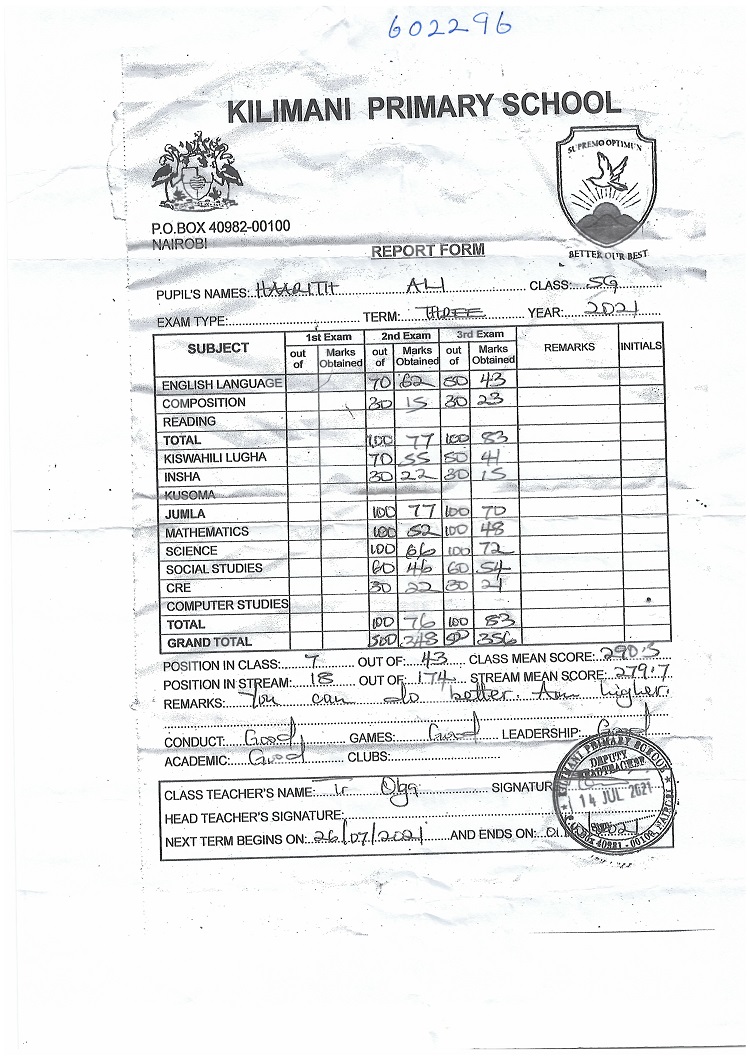 602296
KILIMANI PRIMARY SCHOOL
SUPREMO OPTIMUN
P.O.BOX 40982-00100
NAIROBI
BETTER OUR BEST
REPORT FORM
PUPIL'S NAMES: HAARITH ALI CLASS: 5G
EXAM TYPE: TERM: THREE YEAR: 2021
SUBJECT 1st Exam 2nd Exam 3rd Exam REMARKS INITIALS
out of Marks Obtained out of Marks Obtained out of Marks Obtained
ENGLISH LANGUAGE 70 62 50 43
COMPOSITION 30 15 30 23
READING
TOTAL 100 77 100 83
KISWAHILI LUGHA 70 55 50 41
INSHA 30 22 30 15
KUSOMA
JUMLA 100 77 100 70
MATHEMATICS 100 52 100 48
SCIENCE 100 66 100 72
SOCIAL STUDIES 60 46 60 54
CRE 30 22 30 21
COMPUTER STUDIES
TOTAL 100 76 100 83
GRAND TOTAL 500 348 500 356
POSITION IN CLASS: 7 OUT OF: 43 CLASS MEAN SCORE: 290.5
POSITION IN STREAM: 18 OUT OF: 174 STREAM MEAN SCORE: 279.7
REMARKS: You can do better. Aim higher.
CONDUCT: Good GAMES: Good LEADERSHIP: Good
ACADEMIC: Good CLUBS:
CLASS TEACHER'S NAME: Tr Olga SIGNATURE
HEAD TEACHER'S SIGNATURE:
NEXT TERM BEGINS ON: 26/07/2021 AND ENDS ON: 01
KILIMANI PRIMARY SCHOOL
DEPUTY
HEADTEACHER
14 JUL 2021
P.O. Box 40981 - 00100, NAIROBI